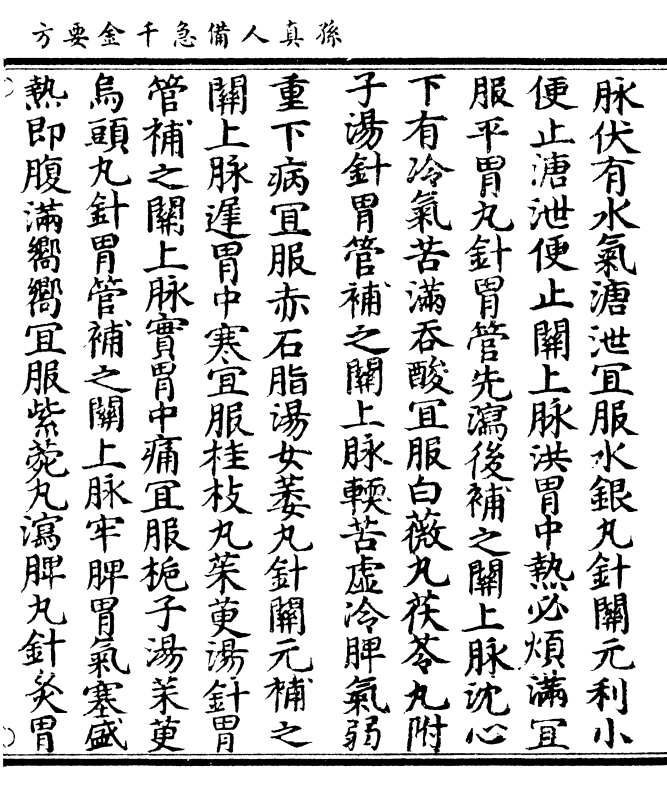 孫真人備急千金要方
脉伏有水氣溏泄宜服水銀丸針關元利小
便止溏泄便止關上脉洪胃中熱必煩滿宜
服平胃丸針胃管先瀉後補之關上脉沈心
下有冷氣苦滿吞酸宜服白薇丸茯苓丸附
子湯針胃管補之關上脉輭苦虛冷脾氣弱
重下病冝服赤石脂湯女萎丸針關元補之
關上脉遲胃中寒宜服桂枝丸茱萸湯針胃
管補之關上脉實胃中痛冝服梔子湯茱萸
烏頭丸針胃管補之關上脉牢脾胃氣塞盛
熱即腹滿嚮嚮冝服紫菀丸瀉脾丸針灸胃